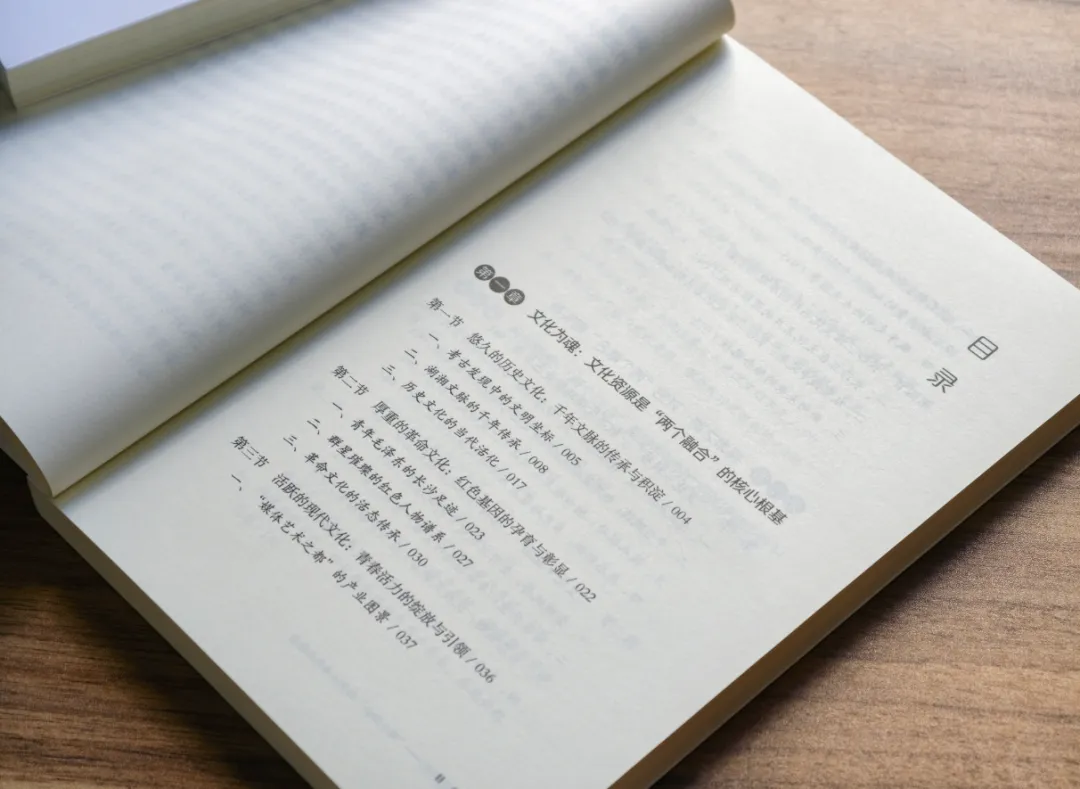 目录
第一章 文化为魂：文化资源是“两个融合”的核心根基
第一节 悠久的历史文化：千年文脉的传承与积淀 / 004
一、考古发现中的文明坐标 / 005
二、湖湘文脉的千年传承 / 008
三、历史文化的当代活化 / 017
第二节 厚重的革命文化：红色基因的孕育与彰显 / 022
一、青年毛泽东的长沙足迹 / 023
二、群星璀璨的红色人物谱系 / 027
三、革命文化的活态传承 / 030
第三节 活跃的现代文化：青春活力的绽放与引领 / 036
一、“媒体艺术之都”的产业图景 / 037